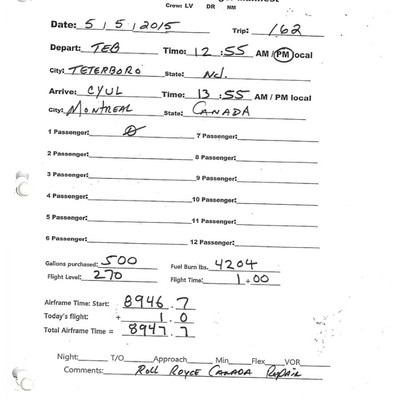 Crew: LV DR NM
Date: 5 / 5 / 2015 Trip: 162
Depart: TEB Time: 12 : 55 AM / PM local
City: TETERBORO State: NJ.
Arrive: CYUL Time: 13 : 55 AM / PM local
City: MONTREAL State: CANADA
1 Passenger: 0 7 Passenger:
2 Passenger: 8 Passenger:
3 Passenger: 9 Passenger:
4 Passenger: 10 Passenger:
5 Passenger: 11 Passenger:
6 Passenger: 12 Passenger:
Gallons purchased: 500 Fuel Burn lbs. 4204
Flight Level: 270 Flight Time: 1+00
Airframe Time: Start: 8946.7
Today's flight: + 1.0
Total Airframe Time = 8947.7
Night: T/O Approach Min Flex VOR
Comments: ROLL ROYCE CANADA REPAIR